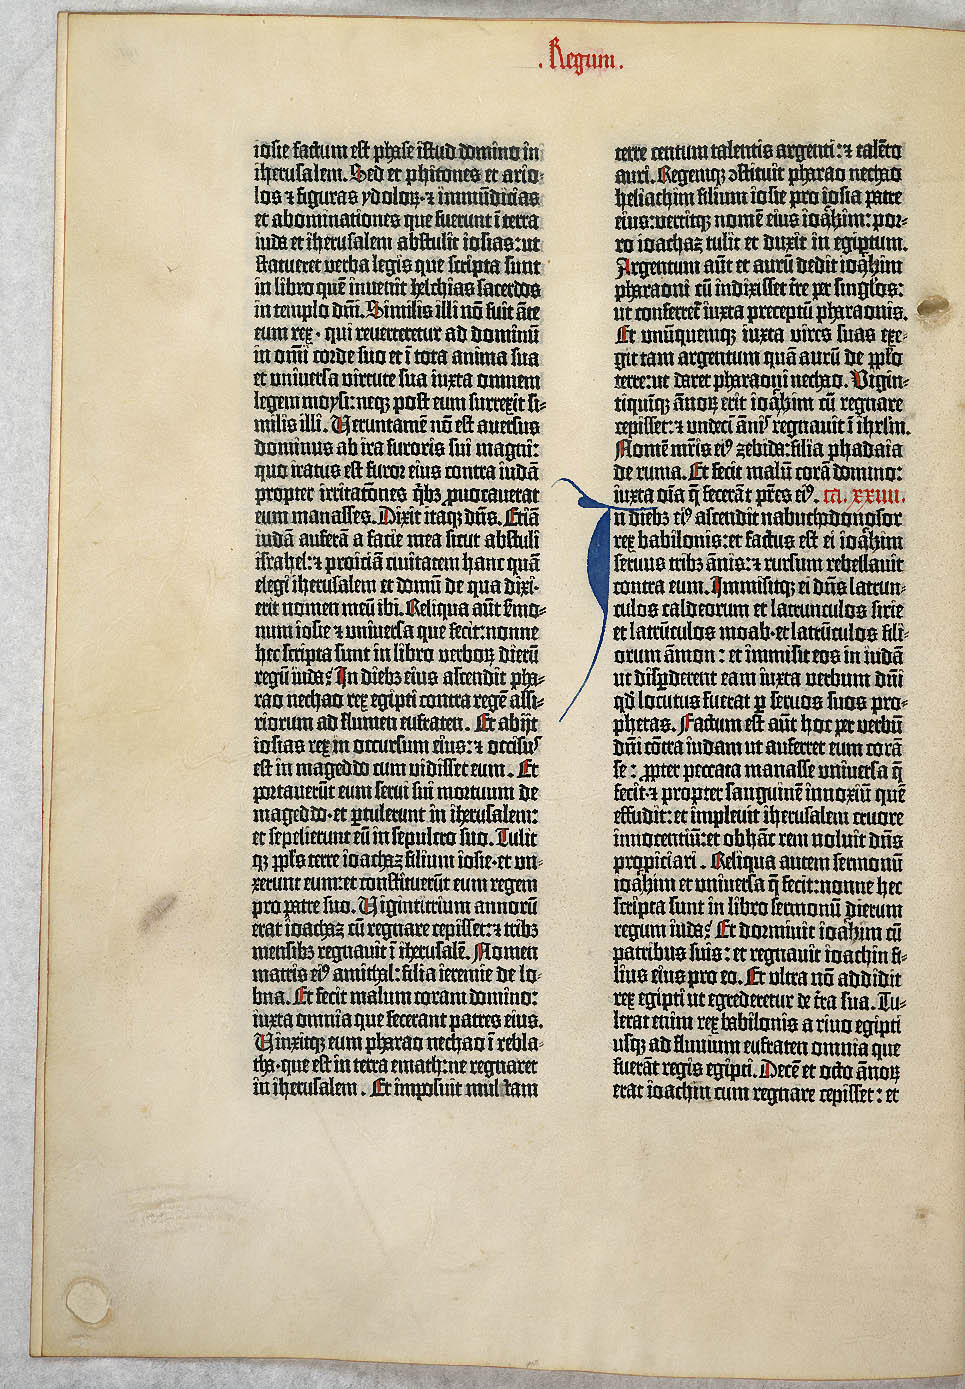 . Regum .
iosie factum est phase istud domino in
iherusalem. Sed et phitones et ario-
los ⁊ figuras ydoloꝝ·⁊ inmūdicias
et abominationes que fuerunt ī terra
iuda et iherusalem abstulit iosias: ut
statueret verba legis que scripta sunt
in libro quē inuenit helchias sacerdos
in templo dn̄i. Similis illi nō fuit āte
eum rex· qui reuerteretur ad dominū
in om̄i corde suo et ī tota anima sua
et universa virtute sua iuxta omnem
legem moysi: neqꝫ post eum surrexit si-
milis illi. Veruntamē nō est aversus
dominus ab ira furoris sui magni:
quo iratus est furor eius contra iudā
propter irritatōnes q̄bꝫ ꝓuocauerat
eum manasses. Dixit itaqꝫ dn̄s. Etiā
iudā auferā a facie mea sicut abstuli
israhel: ⁊ proiciā civitatem hanc quā
elegi iherusalem et domū de qua dixi·
erit nomen meū ibi. Reliqua aūt ẜmo-
num iosie ⁊ universa que fecit: nonne
hec scripta sunt in libro verboꝝ dierū
regū iuda? In diebꝫ eius ascendit pha-
rao nechao rex egipti contra regē assi-
riorum ad flumen eufraten. Et abijt
iosias rex in occursum eius: ⁊ occisꝰ
est in mageddo cum vidisset eum. Et
portaverūt eum servi sui mortuum de
mageddo· et ꝑtulerunt in iherusalem:
et sepelierunt eū in sepulcro suo. Tulit
qꝫ ꝓpl̄s terre ioachaz filium iosie· et vn-
xerunt eum: et constituerūt eum regem
pro patre suo. Vigintitrium annorū
erat ioachaz cū regnare cepisset: ⁊ tribꝫ
mensibꝫ regnavit ī iherusalē. Nomen
matris eiꝰ amithal: filia ieremie de lo-
bna. Et fecit malum coram domino:
iuxta omnia que fecerant patres eius.
Vinxitqꝫ eum pharao nechao ī rebla-
tha· que est in terra emath: ne regnaret
in iherusalem. Et imposuit multam
terre centum talentis argenti: ⁊ talēto
auri. Regemqꝫ ↄstituit pharao nechao
heliachim filium iosie pro iosia patre
eius: vertitqꝫ nomē eius ioachim: por-
ro ioachaz tulit et duxit in egiptum.
Argentum aūt et aurū dedit ioachim
pharaoni cū indixisset tr̄e per singl̄os:
ut conferret̄ iuxta preceptū pharaonis.
Et vnūquemqꝫ iuxta vires suas exe-
git tam argentum quā aurū de ꝓpl̄o
terre: ut daret pharaoni nechao. Vigin-
tiquīqꝫ ānoꝝ erit ioachim cū regnare
cepisset: ⁊ vndecī ānis regnavit ī ihrl̄m.
Nomē mr̄is eiꝰ zebida: filia phadaia
de ruma. Et fecit malū corā domino:
iuxta oīa q̄ fecerāt pr̄es eiꝰ. ca. xxiiii.
In diebꝫ eiꝰ ascendit nabuchodonosor
rex babilonis: et factus est ei ioachim
servus tribꝫ ānis: ⁊ rursum rebellavit
contra eum. Immisitqꝫ ei dn̄s latrun-
culos caldeorum et latrunculos sirie
et latrūculos moab· et latrūculos fili-
orum āmon: et immisit eos in iudā
ut disꝑderent eam iuxta verbum dn̄i
qd̄ locutus fuerat ꝑ servos suos pro-
phetas. Factum est aūt hoc per verbū
dn̄i cōtra iudam ut auferret eum corā
se: ꝓpter peccata manasse universa q̄
fecit· ⁊ propter sanguinē innoxiū quē
effudit: et impleuit iherusalem cruore
innocentiū: et obhāc rem noluit dn̄s
propiciari. Reliqua autem sermonū
ioachim et universa q̄ fecit: nonne hec
scripta sunt in libro sermonū dierum
regum iuda? Et dormiuit ioachim cū
patribus suis: et regnauit ioachin fi-
lius eius pro eo. Et vltra nō addidit
rex egipti ut egrederetur de tr̄a sua. Tu-
lerat enim rex babilonis a rivo egipti
usqꝫ ad fluvium eufraten omnia que
fuerāt regis egipti. Decē et octo ānoꝝ
erat ioachin cum regnare cepisset: et